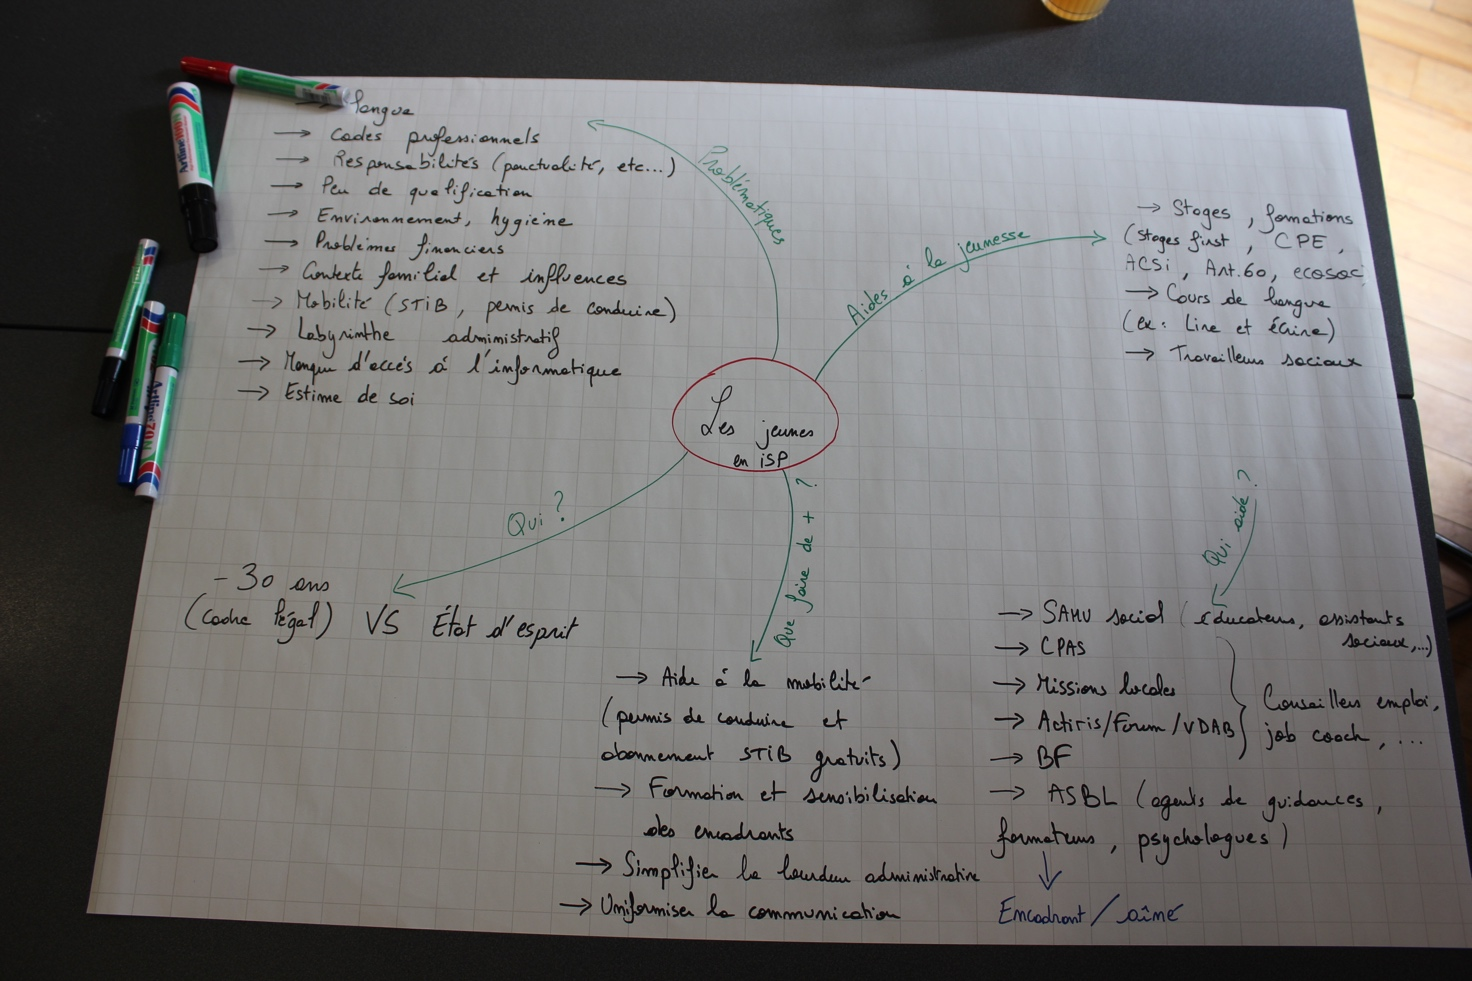 → langue
→ Codes professionnels
→ Responsabilités (ponctualité, etc...)
→ Peu de qualification
→ Environnement, hygiène
→ Problèmes financiers
→ Contexte familial et influences
→ Mobilité (STiB, permis de conduire)
→ Labyrinthe administratif
→ Manque d'accés à l'informatique
→ Estime de soi
Problématiques
Aides à la jeunesse
→ Stages, formations
(stages first, CPE,
ACSi, Art.60, ecosoc
→ Cours de langue
(ex: Lire et écrire)
→ Travailleurs sociaux
Les jeunes
en iSP
Qui ?
- 30 ans
(cadre légal) VS État d'esprit
Que faire de + ?
→ Aide à la mobilité
(permis de conduire et
abonnement STiB gratuits)
→ Formation et sensibilisation
des encadrants
→ Simplifier la lourdeur administrative
→ Uniformiser la communication
Qui aide ?
→ SAMU social (éducateurs, assistants
sociaux,...)
→ CPAS
→ Missions locales
→ Actiris/Forem/VDAB
→ BF
Conseillers emploi,
job coach, ...
→ ASBL (agents de guidances,
formateurs, psychologues)
Encadrant / aîmé
Artline 100N
Artline 70N